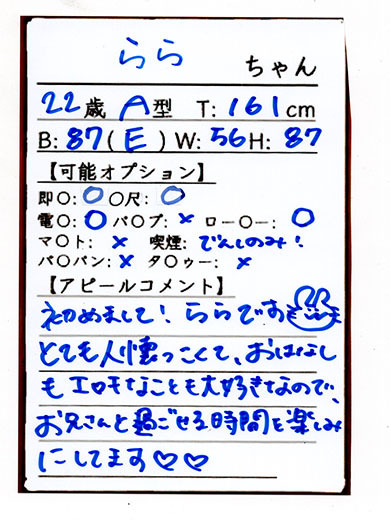 らら ちゃん
22歳 A型 T:161cm
B:87(E) W:56 H:87
【可能オプション】
即〇:〇 〇尺:〇
電〇:〇 バ〇ブ:× ロー〇ー:〇
マ〇ト:× 喫煙:でんしのみ!
パ〇パン:× タ〇ゥー:×
【アピールコメント】
初めまして!ららです
とても人懐っこくて、おはなし
もエロモなことも大好きなので、
お兄さんと過ごせる時間を楽しみ
にしてます♡♡